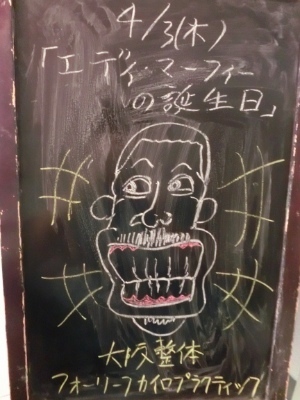 4/3(木)
「エディ・マーフィー
の誕生日」
大阪整体
フォーリーフカイロプラクティック